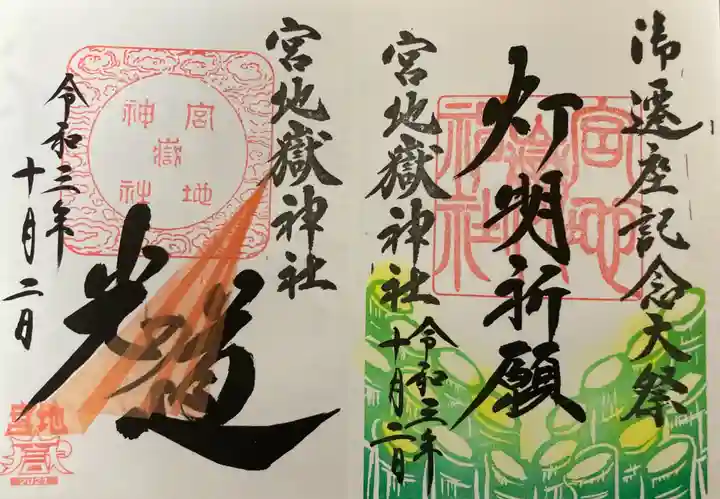 御遷座記念大祭
灯明祈願
宮地嶽神社
宮地嶽神社
令和三年
十月二日
宮地嶽神社
宮地嶽神社
光道
令和三年
十月二日
宮地嶽
2021